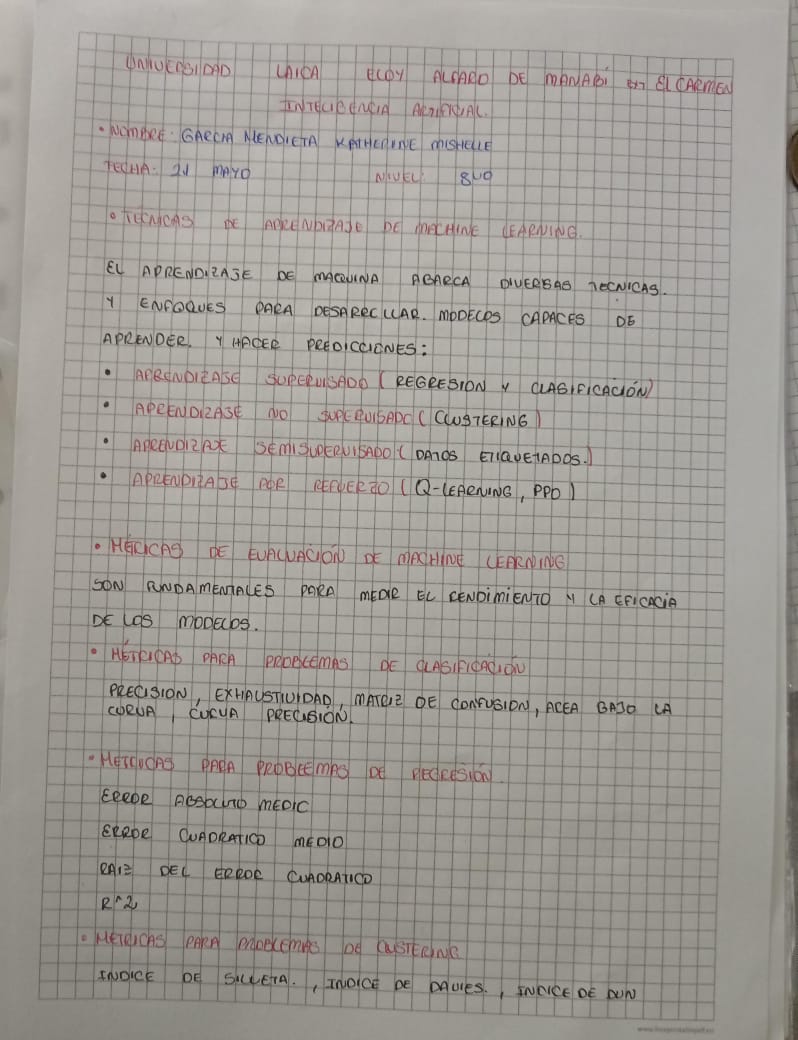 UNIVERSIDAD LAICA ELOY ALFARO DE MANABÍ EXT EL CARMEN
INTELIGENCIA ARTIFICIAL.
• NOMBRE: GARCIA MENDIETA KATHERINE MISHELLE
FECHA: 21 MAYO NIVEL: 8VO
• TECNICAS DE APRENDIZAJE DE MACHINE LEARNING.
EL APRENDIZAJE DE MAQUINA ABARCA DIVERSAS TECNICAS.
Y ENFOQUES PARA DESARROLLAR. MODELOS CAPACES DE
APRENDER. Y HACER PREDICCIONES:
• APRENDIZAJE SUPERVISADO (REGRESION Y CLASIFICACIÓN)
• APRENDIZAJE NO SUPERVISADO (CLUSTERING)
• APRENDIZAJE SEMISUPERVISADO (DATOS ETIQUETADOS.)
• APRENDIZAJE POR REFUERZO (Q-LEARNING, PPO)
• MÉTRICAS DE EVALUACIÓN DE MACHINE LEARNING
SON FUNDAMENTALES PARA MEDIR EL RENDIMIENTO Y LA EFICACIA
DE LOS MODELOS.
• MÉTRICAS PARA PROBLEMAS DE CLASIFICACIÓN
PRECISION, EXHAUSTIVIDAD, MATRIZ DE CONFUSION, AREA BAJO LA
CURVA, CURVA PRECISIÓN.
• METRICAS PARA PROBLEMAS DE REGRESIÓN
ERROR ABSOLUTO MEDIO
ERROR CUADRATICO MEDIO
RAIZ DEL ERROR CUADRATICO
R^2
• METRICAS PARA PROBLEMAS DE CLUSTERING
INDICE DE SILUETA., INDICE DE DAVIES., INDICE DE DUN